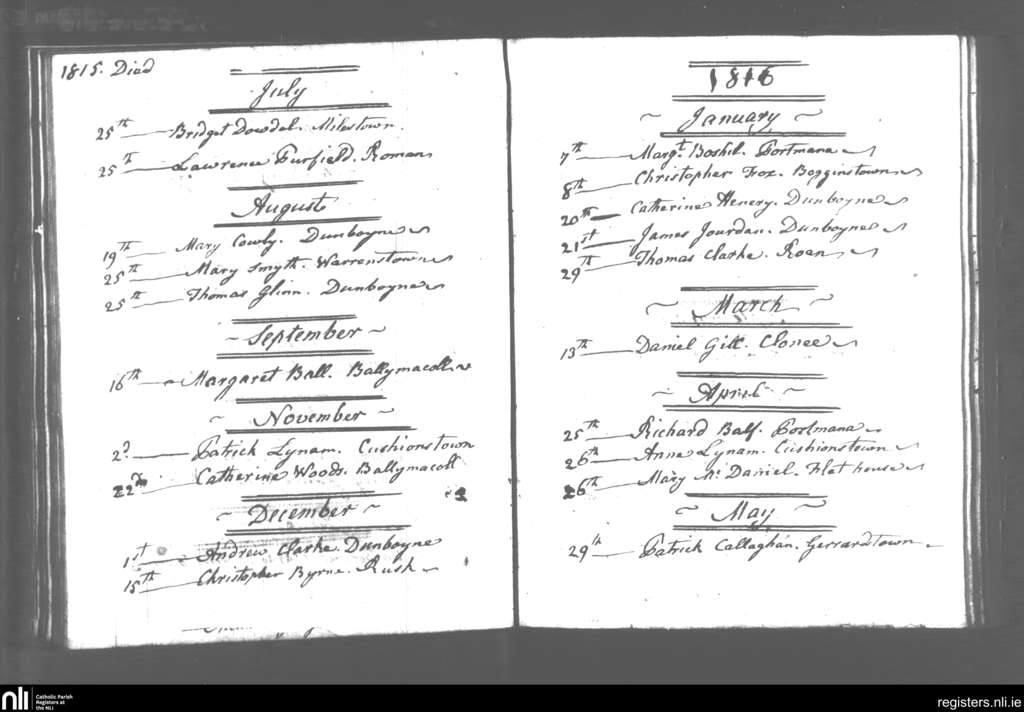 1815. Died
July
25th Bridget Dowdal. Milestown.
25th Lawrence Furfield. Roman
August
19th Mary Cowly. Dunboyne
25th Mary Smyth. Warrenstown
25th Thomas Glinn. Dunboyne
September
16th Margaret Ball. Ballymacoll
November
2d Patrick Lynam. Cushionstown
22nd Catherine Woods. Ballymacoll
December
1st Andrew Clarke. Dunboyne
15th Christopher Byrne. Rush
1816
January
7th Margt. Boshil. Portmana
8th Christopher Fox. Bogginstown
20th Catherine Henery. Dunboyne
21st James Jourdan. Dunboyne
29th Thomas Clarke. Roan
March
13th Daniel Gill. Clonee
April
25th Richard Balf. Portmana
26th Anne Lynam. Cushionstown
26th Mary Mc Daniel. Flat house
May
29th Patrick Callaghan. Gerrardtown
nli
Catholic Parish
Registers at
the NLI
registers.nli.ie